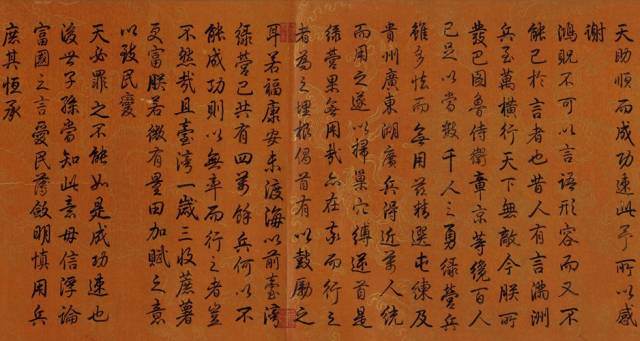 天助順而成功速此予所以感
謝
鴻貺不可以言語形容而又不
能已於言者也昔人有言滿洲
兵至萬橫行天下無敵今朕所
發巴圖魯侍衛章京等纔百人
已足以當數千人之勇綠營兵
雖多怯而無用茲精選屯練及
貴州廣東湖廣兵得近萬人統
而用之遂以掃巢穴縛逆首是
綠營果無用哉亦在率而行之
者為之埋根倡首有以鼓勵之
耳若福康安未渡海以前臺灣
綠營已共有四萬餘兵何以不
能成功則以無率而行之者豈
不然哉且臺灣一歲三收蔗薯
更富朕若微有量田加賦之意
以致民變
天必罪之不能如是成功速也
後世子孫當知此意毋信浮論
富國之言愛民薄斂明慎用兵
庶其恒承